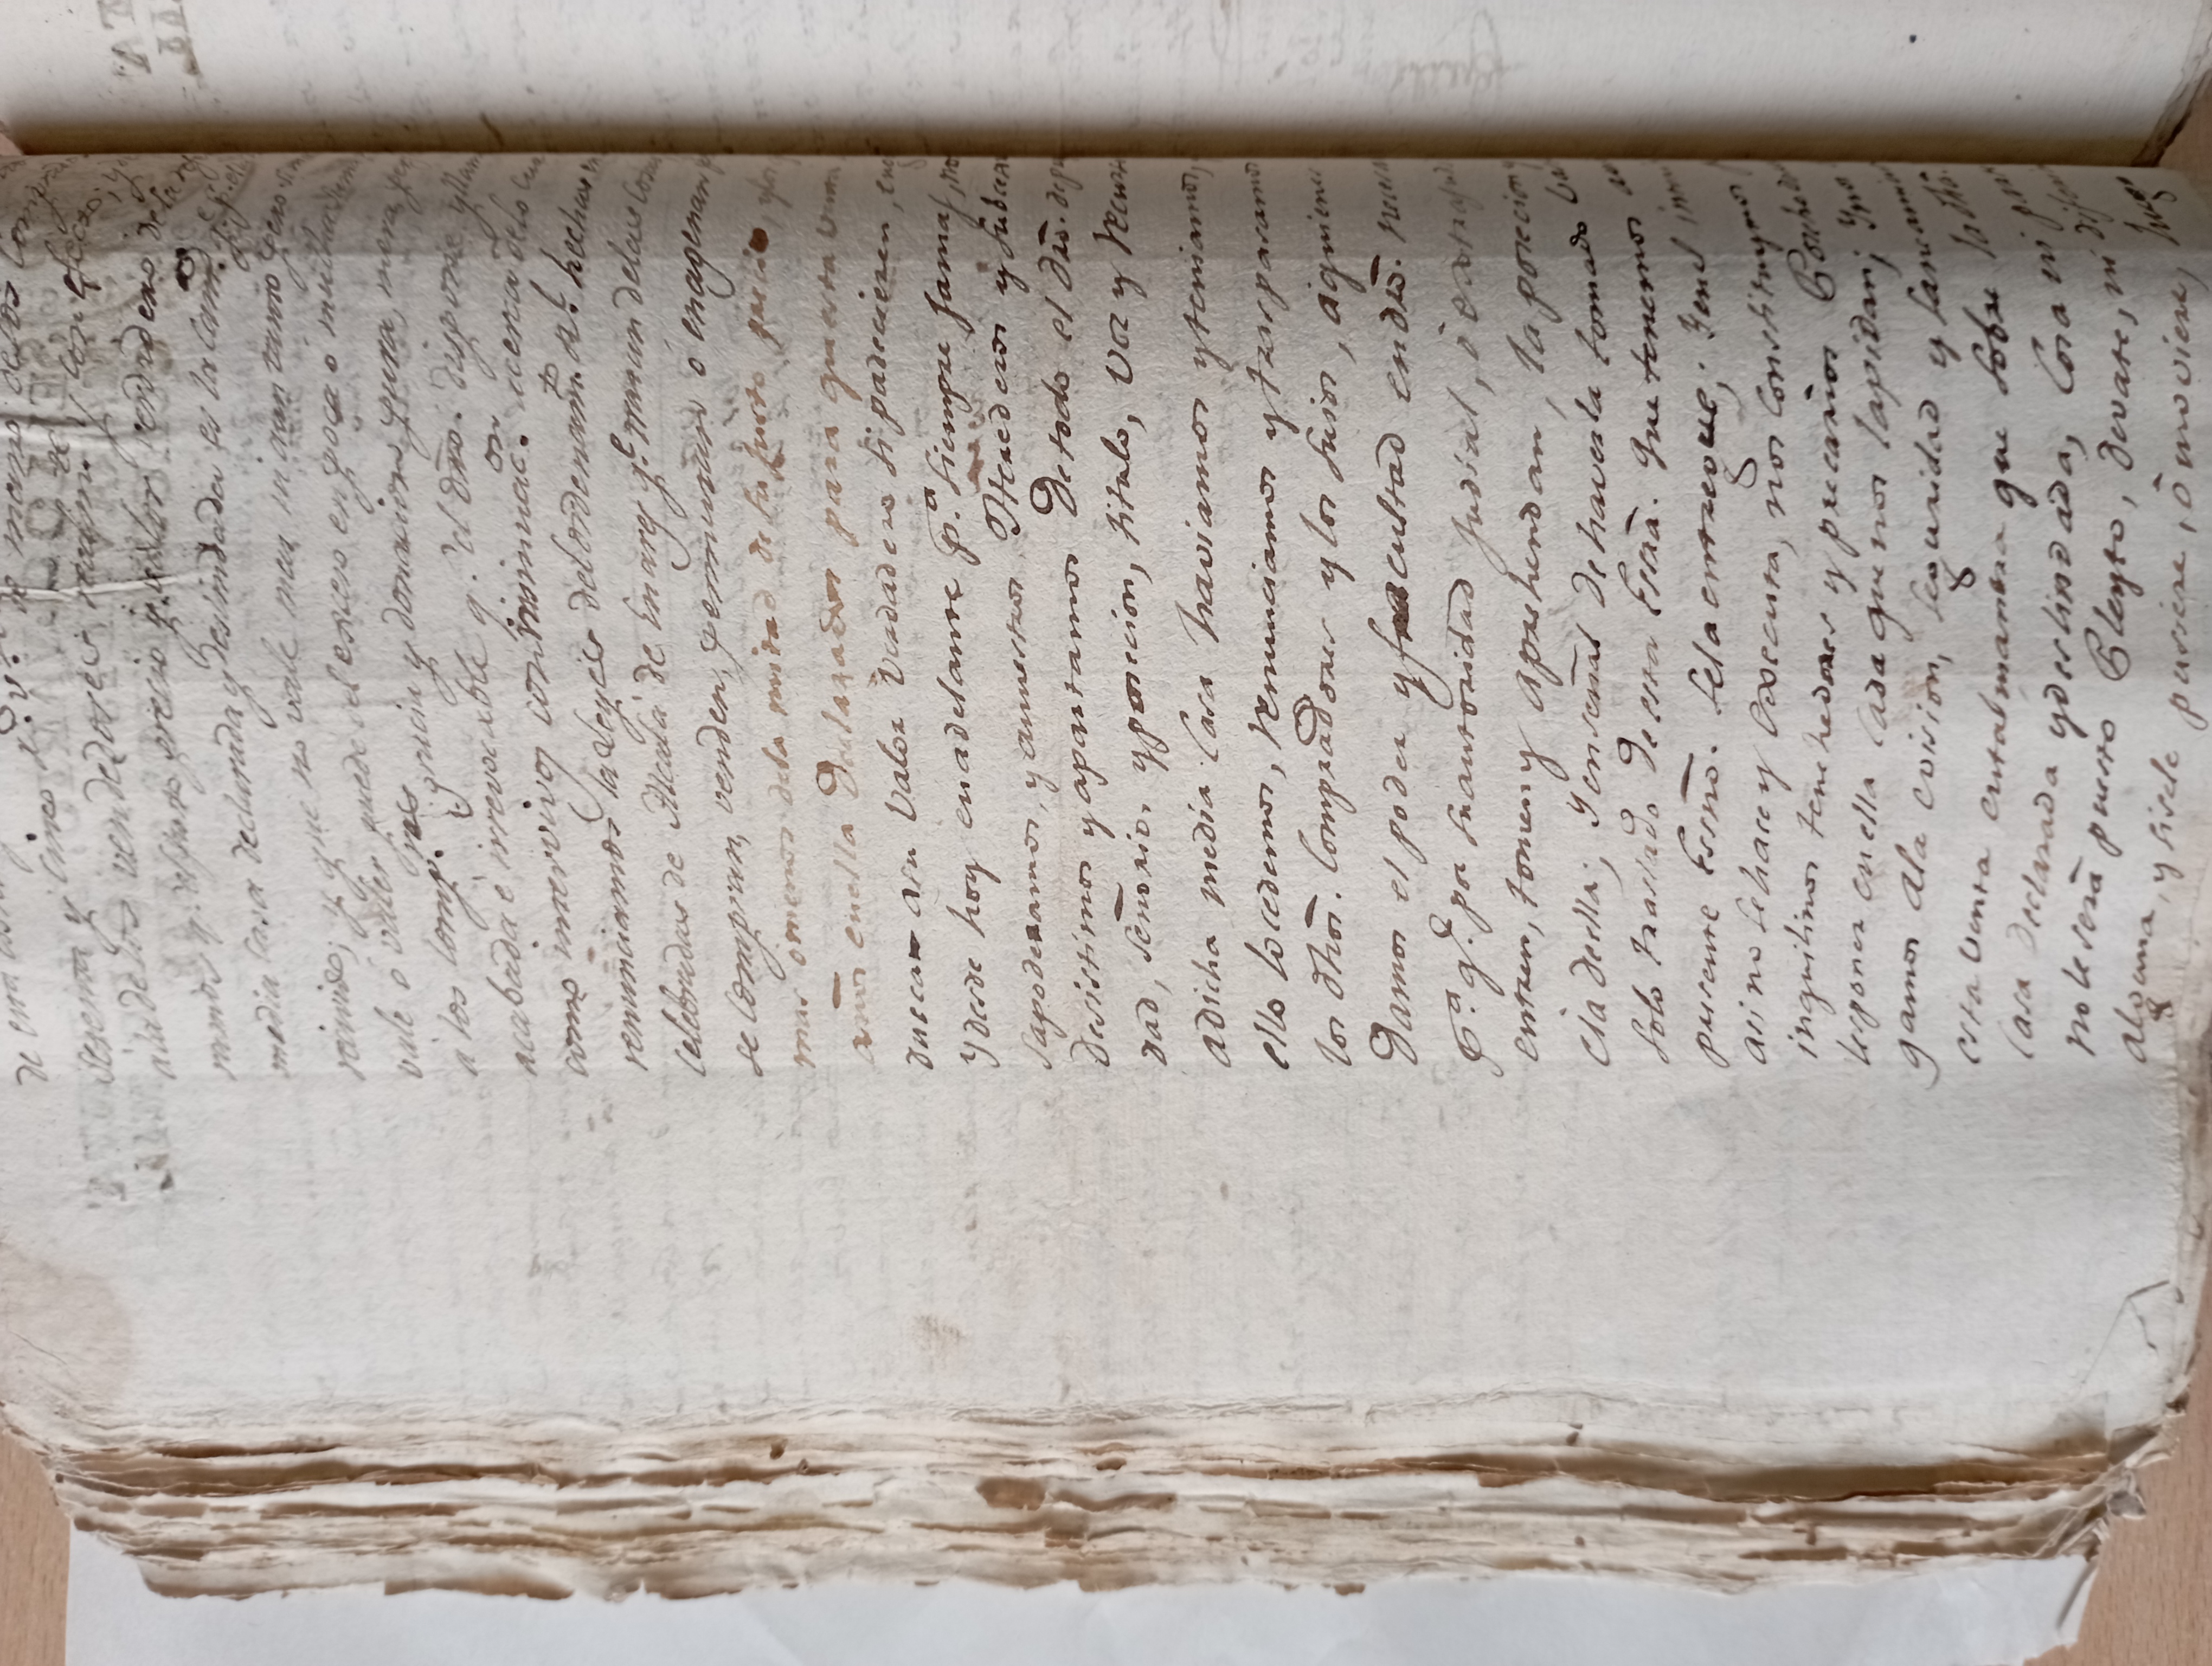 de esta
sesenta y cinco r.s v.n de mano de los Compra
á la de los vendedores realm.te y con efecto; y
ramos q.e el justo precio y valor verdadero de la
media casa declarada y deslindada es la cant.d q.e
recivido; y que no vale mas ni aun tanto pero si
vale ó valer puede del exceso en poca ó mucha
á los Comp.res gracia y donacion pura, mera,
acabada é irrevocable q.e el dr̃o. dispone, y llam
como intervivos con insinuac.on acerca de lo cu
renunciamos las Leyes del ordenam.to R.l hechas
celebradas de Alcalá de Enares q.e tratan de las cosas
se compran, venden, permutan ó enagenan
mas ó menos dela mitad de su justo precio, y los
anõs enella Declarados para que esta venta
duecan asu Valor Verdadero si padecieren,
y desde hoy enadelante p.a siempre Jamas, no
sapoderamos, y anuestros Herederos y Subces
desistimos y apartamos De todo el dr̃o. de p
dad, señorio, y posecion, titulo, Voz y recurs
adicha media Casa haviamos y teniamos,
ello lo cedemos, renunciamos y traspasamos
los dh̃os. Compradores y los suios, aquienes
Damos el poder y facultad en dr̃o. neces
p.a q.e por su autoridad Judial, ó extrajud
entren, tomen y aprehendan, la posecion
cia deella; y enseñal de haverla tomado
solo traslado de esta Essrã. que tenemos
presente Essnõ. sela entregue; Y en el inter
asi no se hace y executa, nos constituymos
inquilinos tenehedores y precarios Posehedo
lesponer en ella cada que nos lapidan; Y no
gamos ala evision, seguridad y saneamien
esta venta entalmanera que sobre la dh̃a.
Casa Declarada y deslindada, Cosa ni parte
no le será puesto Pleyto, devate, ni difer
alguna, y sisele pusiere, ó moviere, luego